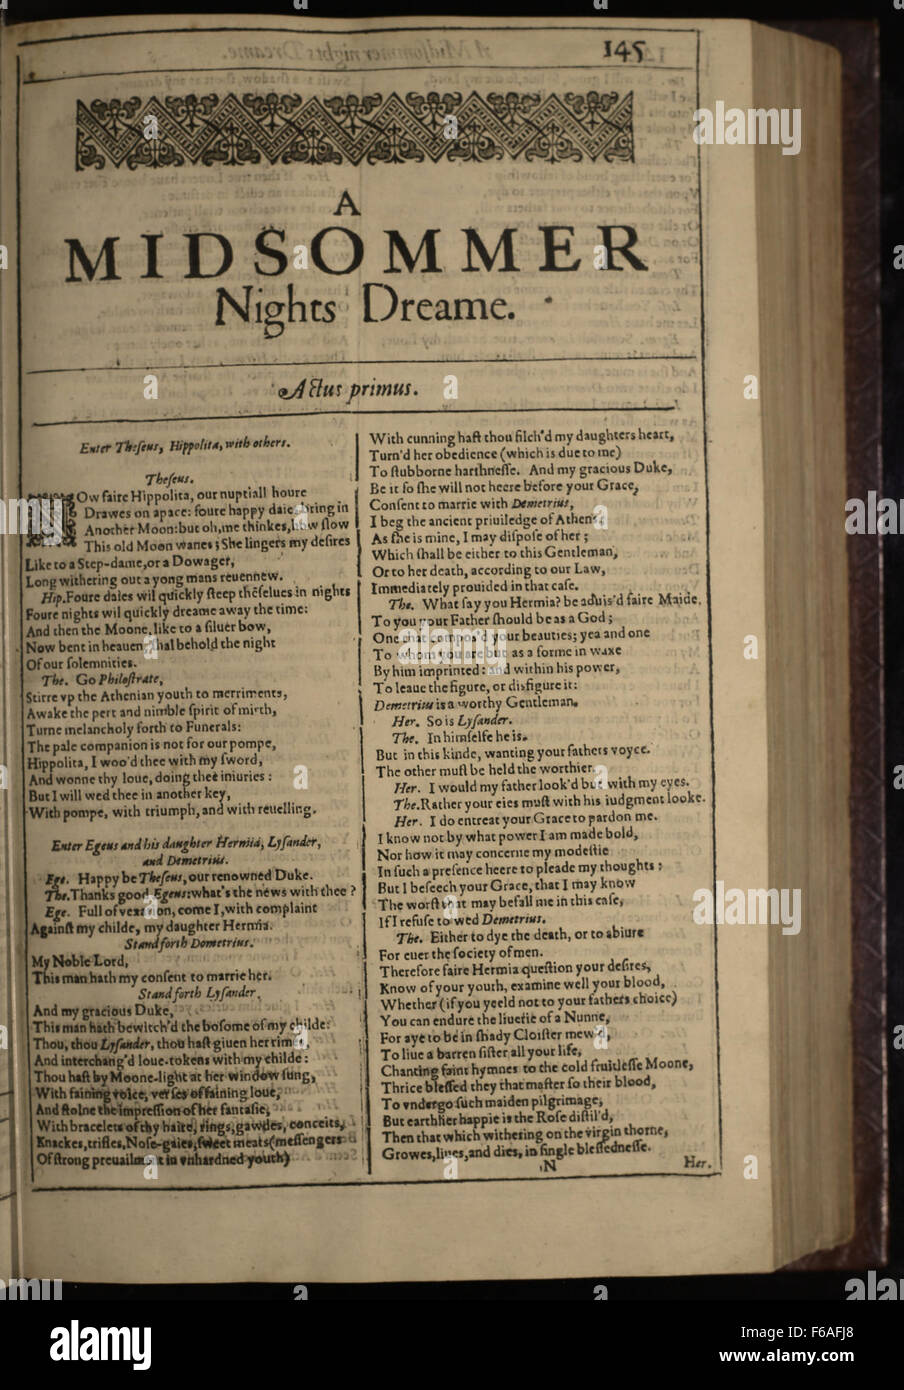 145
A
MIDSOMMER
Nights Dreame.
Actus primus.
Enter Theseus, Hippolita, with others.
Theseus.
NOw faire Hippolita, our nuptiall houre
Drawes on apace: foure happy daies bring in
Another Moon: but oh, me thinkes, how slow
This old Moon wanes; She lingers my desires
Like to a Step-dame, or a Dowager,
Long withering out a yong mans reuennew.
Hip. Foure daies wil quickly steep thēselues in nights
Foure nights wil quickly dreame away the time:
And then the Moone, like to a siluer bow,
Now bent in heauen, shal behold the night
Of our solemnities.
The. Go Philostrate,
Stirre vp the Athenian youth to merriments,
Awake the pert and nimble spirit of mirth,
Turne melancholy forth to Funerals:
The pale companion is not for our pompe,
Hippolita, I woo'd thee with my sword,
And wonne thy loue, doing thee iniuries:
But I will wed thee in another key,
With pompe, with triumph, and with reuelling.
Enter Egeus and his daughter Hermia, Lysander,
and Demetrius.
Ege. Happy be Theseus, our renowned Duke.
The. Thanks good Egeus: what's the news with thee?
Ege. Full of vexation, come I, with complaint
Against my childe, my daughter Hermia.
Stand forth Demetrius.
My Noble Lord,
This man hath my consent to marrie her.
Stand forth Lysander.
And my gracious Duke,
This man hath bewitch'd the bosome of my childe:
Thou, thou Lysander, thou hast giuen her rimes,
And interchang'd loue-tokens with my childe:
Thou hast by Moone-light at her window sung,
With faining voice, verses of faining loue,
And stolne the impression of her fantasie,
With bracelets of thy haire, rings, gawdes, conceits,
Knackes, trifles, Nose-gaies, sweet meats (messengers
Of strong preuailment in vnhardned youth)
With cunning hast thou filch'd my daughters heart,
Turn'd her obedience (which is due to me)
To stubborne harshnesse. And my gracious Duke,
Be it so she will not heere before your Grace,
Consent to marrie with Demetrius,
I beg the ancient priuiledge of Athens;
As she is mine, I may dispose of her;
Which shall be either to this Gentleman,
Or to her death, according to our Law,
Immediately prouided in that case.
The. What say you Hermia? be aduis'd faire Maide,
To you your Father should be as a God;
One that compos'd your beauties; yea and one
To whom you are but as a forme in waxe
By him imprinted: and within his power,
To leaue the figure, or disfigure it:
Demetrius is a worthy Gentleman.
Her. So is Lysander.
The. In himselfe he is.
But in this kinde, wanting your fathers voyce.
The other must be held the worthier.
Her. I would my father look'd but with my eyes.
The. Rather your eies must with his iudgment looke.
Her. I do entreat your Grace to pardon me.
I know not by what power I am made bold,
Nor how it may concerne my modestie
In such a presence heere to pleade my thoughts:
But I beseech your Grace, that I may know
The worst that may befall me in this case,
If I refuse to wed Demetrius.
The. Either to dye the death, or to abiure
For euer the society of men.
Therefore faire Hermia question your desires,
Know of your youth, examine well your blood,
Whether (if you yeeld not to your fathers choice)
You can endure the liuerie of a Nunne,
For aye to be in shady Cloister mew'd,
To liue a barren sister all your life,
Chanting faint hymnes to the cold fruitlesse Moone,
Thrice blessed they that master so their blood,
To vndergo such maiden pilgrimage,
But earthlier happie is the Rose distil'd,
Then that which withering on the virgin thorne,
Growes, liues, and dies, in single blessednesse.
N
Her.
alamy
Image ID: F6AFJ8
www.alamy.com